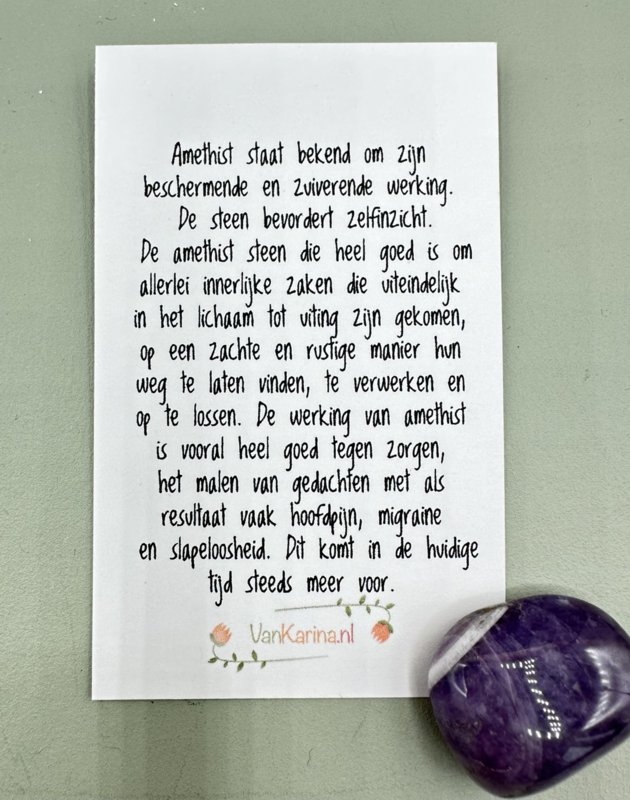 Amethist staat bekend om zijn
beschermende en zuiverende werking.
De steen bevordert zelfinzicht.
De amethist steen die heel goed is om
allerlei innerlijke zaken die uiteindelijk
in het lichaam tot uiting zijn gekomen,
op een zachte en rustige manier hun
weg te laten vinden, te verwerken en
op te lossen. De werking van amethist
is vooral heel goed tegen zorgen,
het malen van gedachten met als
resultaat vaak hoofdpijn, migraine
en slapeloosheid. Dit komt in de huidige
tijd steeds meer voor.
VanKarina.nl